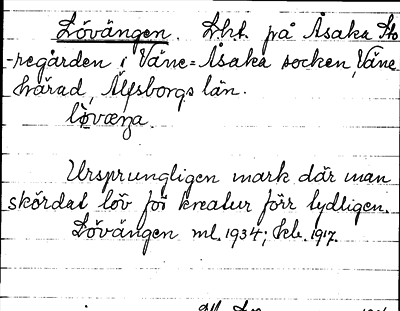 Lövängen. Lht. på Åsaka Sto
-regården i Väne-Åsaka socken, Väne
härad, Älfsborgs län.
lö̀væŋa.
Ursprungligen mark där man
skördat löv för kreatur förr tydligen.
Lövängen ml. 1934; Ekb. 1917.